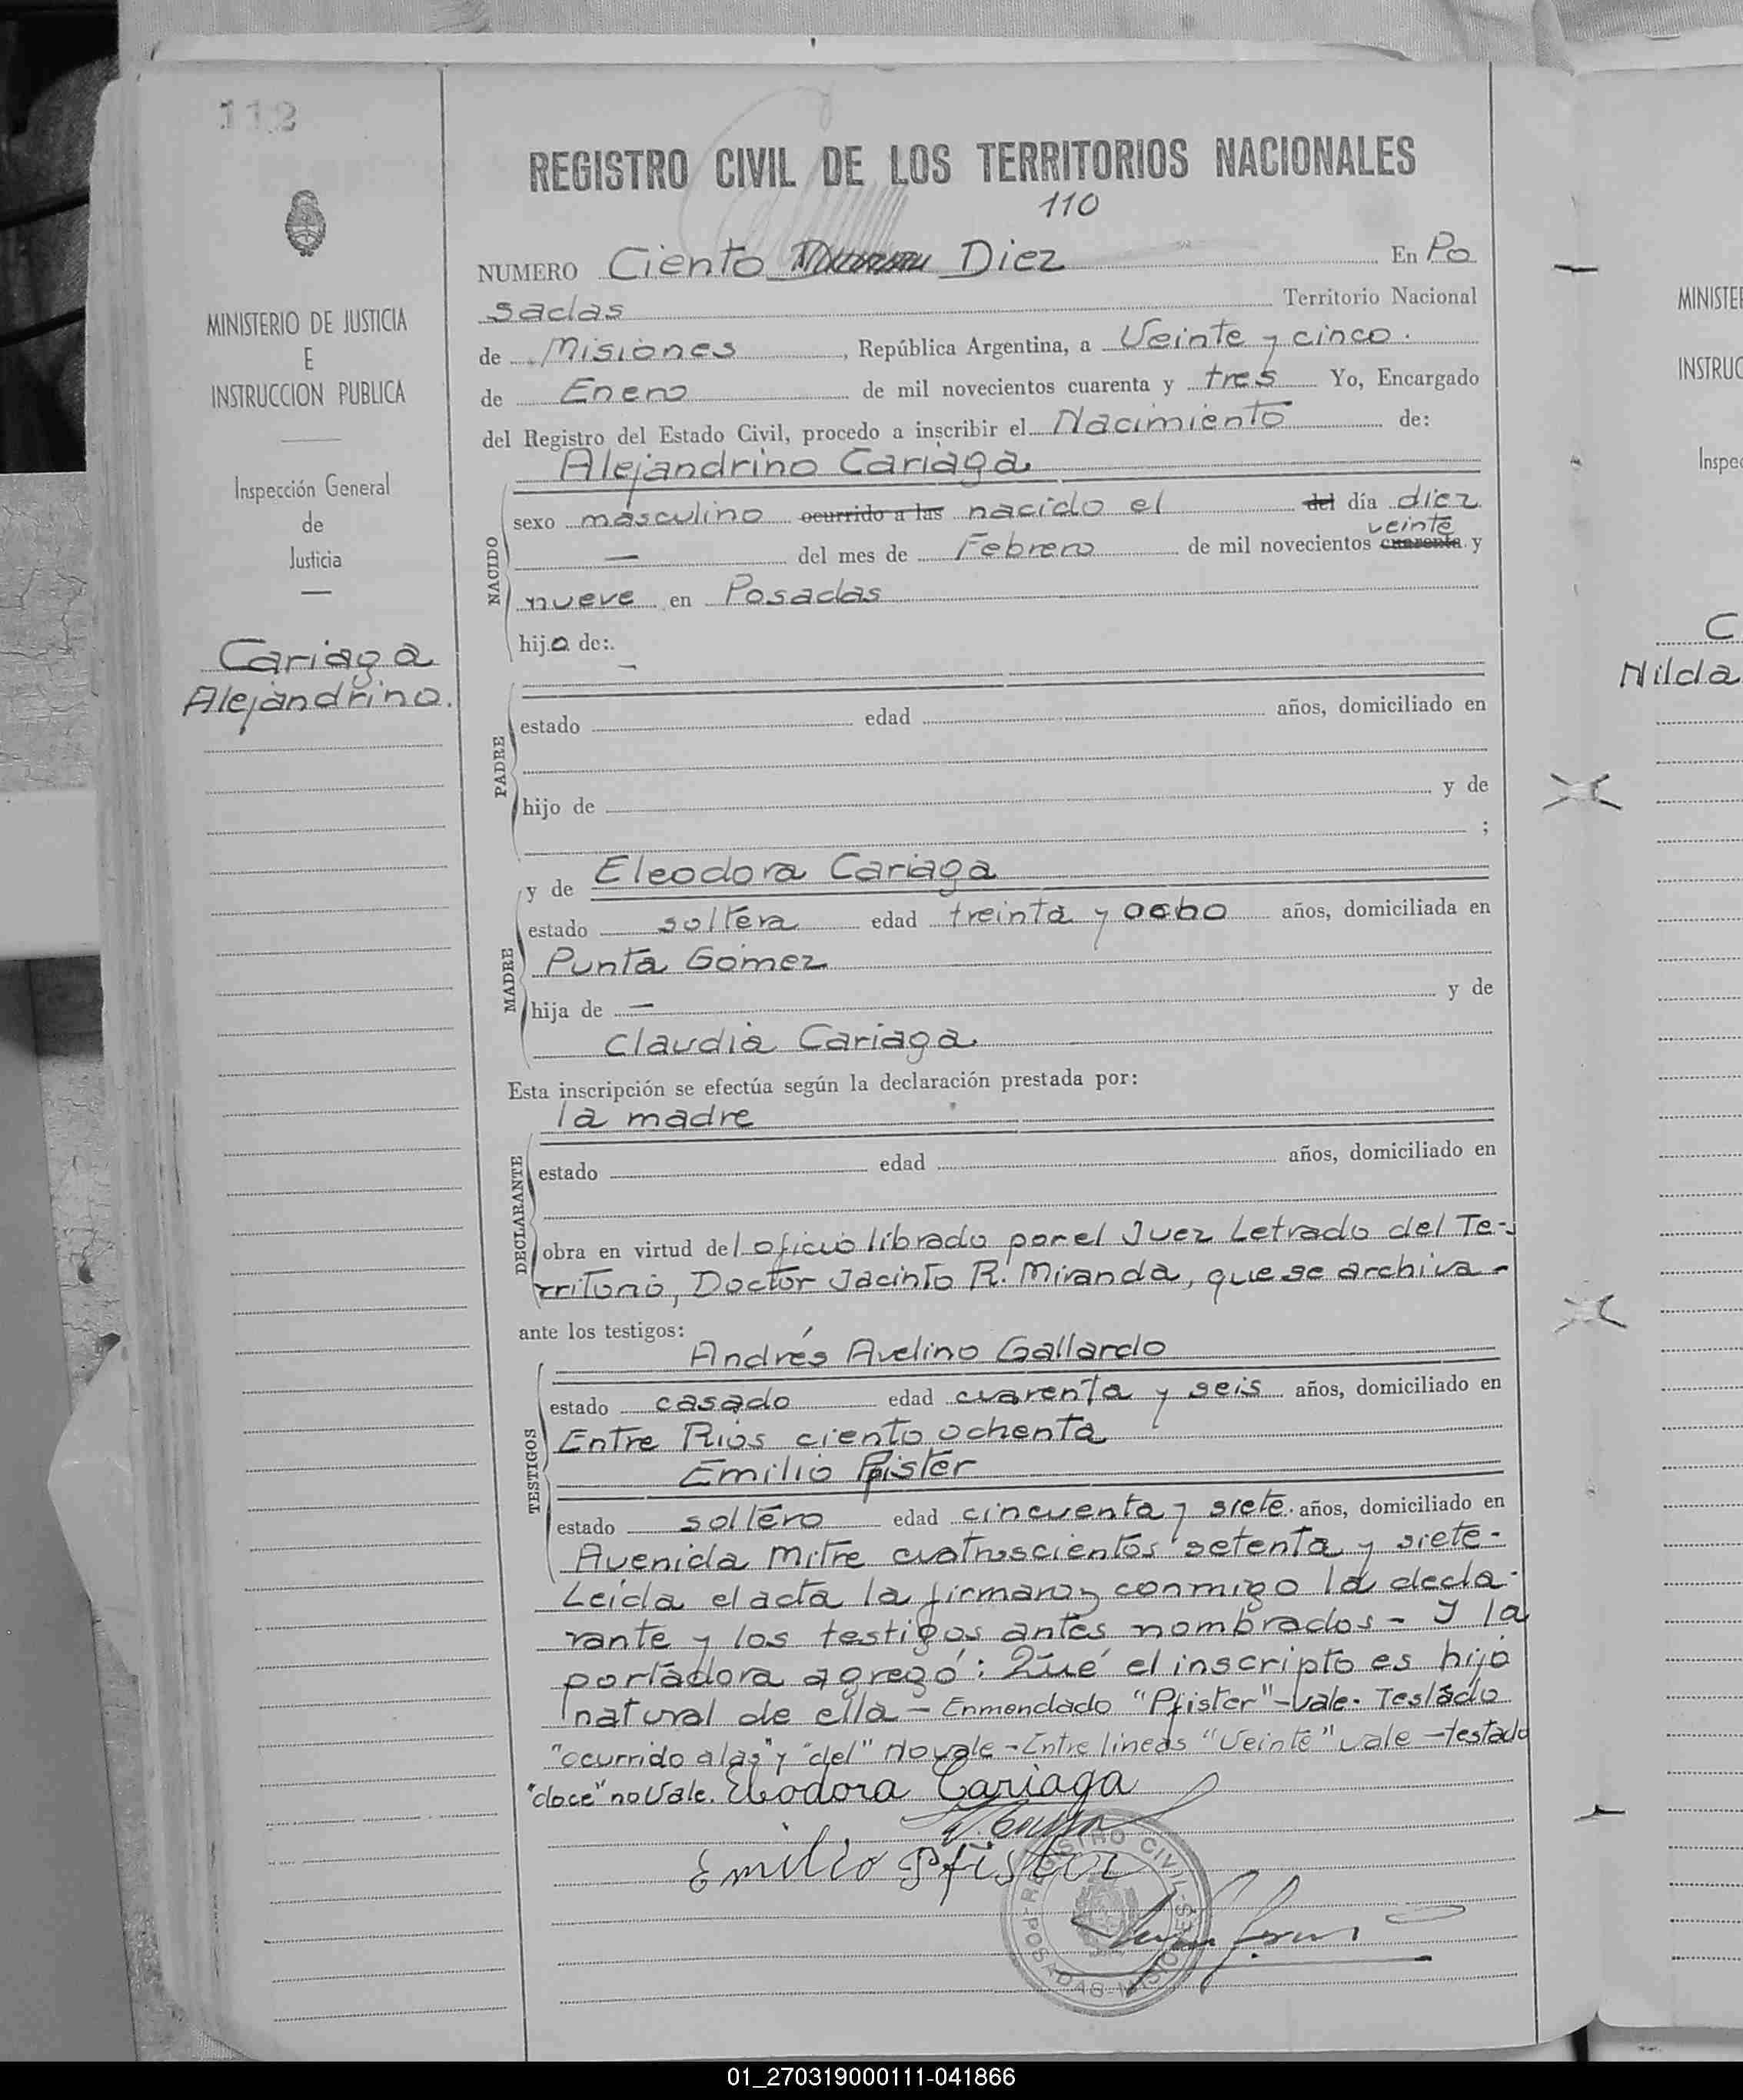 112
REGISTRO CIVIL DE LOS TERRITORIOS NACIONALES
110
NUMERO Ciento Diez En Po
sadas Territorio Nacional
de Misiones, República Argentina, a Veinte y cinco.
de Enero de mil novecientos cuarenta y tres Yo, Encargado
del Registro del Estado Civil, procedo a inscribir el Nacimiento de:
Alejandrino Cariaga
NACIDO
sexo masculino ocurrido a las nacido el del día diez
veinte
— del mes de Febrero de mil novecientos cuarenta y
nueve en Posadas
hijo de:
—
PADRE
estado edad años, domiciliado en
hijo de y de
;
MADRE
y de Eleodora Cariaga
estado soltera edad treinta y ocho años, domiciliada en
Punta Gómez
hija de — y de
Claudia Cariaga
Esta inscripción se efectúa según la declaración prestada por:
la madre
DECLARANTE
estado edad años, domiciliado en
obra en virtud del oficio librado por el Juez Letrado del Te-
rritorio, Doctor Jacinto R. Miranda, que se archiva-
ante los testigos:
Andrés Avelino Gallardo
TESTIGOS
estado casado edad cuarenta y seis años, domiciliado en
Entre Rios ciento ochenta
Emilio Pfister
estado soltero edad cincuenta y siete. años, domiciliado en
Avenida Mitre cuatroscientos setenta y siete-
Leida el acta la firmaron conmigo la decla-
rante y los testigos antes nombrados - Y la
portadora agregó: Qué el inscripto es hijo
natural de ella - Enmendado "Pfister"-vale. Testádo
"ocurrido a las" y "del" No vale - Entre lineas "Veinte" vale - testado
"doce" no Vale. Eleodora Cariaga
Emilio Pfister
REGISTRO CIVIL
POSADAS MISIONES
MINISTERIO DE JUSTICIA
E
INSTRUCCION PUBLICA
Inspección General
de
Justicia
Cariaga
Alejandrino.
MINISTE
INSTRUC
Inspe
C
Nilda
01_270319000111-041866